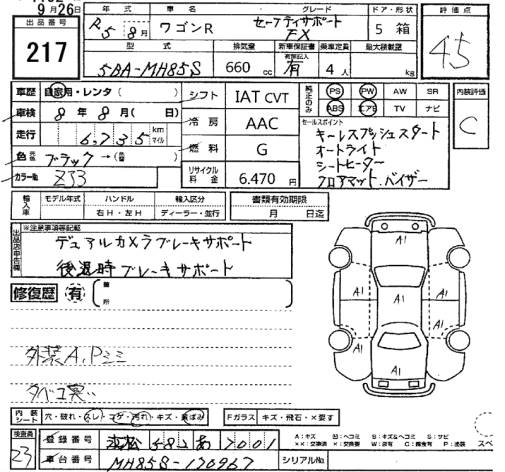 9月26日
出品番号
217
年式 車名 グレード ドア・形状 評価点
R5 8月 ワゴンR セーフティサポート FX 5 箱
4.5
型式 排気量 新車保証書 乗車定員 最大積載量
5BA-MH85S 660cc 有 4人 kg
車歴 自家用・レンタ( )
シフト IAT CVT
純正のみ PS PW AW SR
ABS エアB TV ナビ
内装評価
C
車検 8年8月( 日)
冷房 AAC
セールスポイント
キーレスプッシュスタート
オートライト
シートヒーター
フロアマット.バイザー
走行 6,735 km マイル
燃料 G
色 ブラック→( )
カラーNo. Z33
リサイクル料金 6.470円
輸入車 モデル年式 ハンドル 輸入区分 書類有効期限
年 右H・左H ディーラー・並行 月 日迄
出品店申告欄
※注意事項等記載
デュアルカメラブレーキサポート
後退時ブレーキサポート
修復歴 有 ( 箇所 )
A1
A1 A1 A1
A1
外装A.Pミミ
タバコ臭い
内装シート 穴・破れ・スレ・コゲ・汚れ・キズ・黄ばみ
Fガラス キズ・飛石・X要す
検査員
23
登録番号 浜松 581 あ 7001
車台番号 MH85S-170967
シリアルNo.
A:キズ U:ヘコミ B:キズ&ヘコミ S:サビ